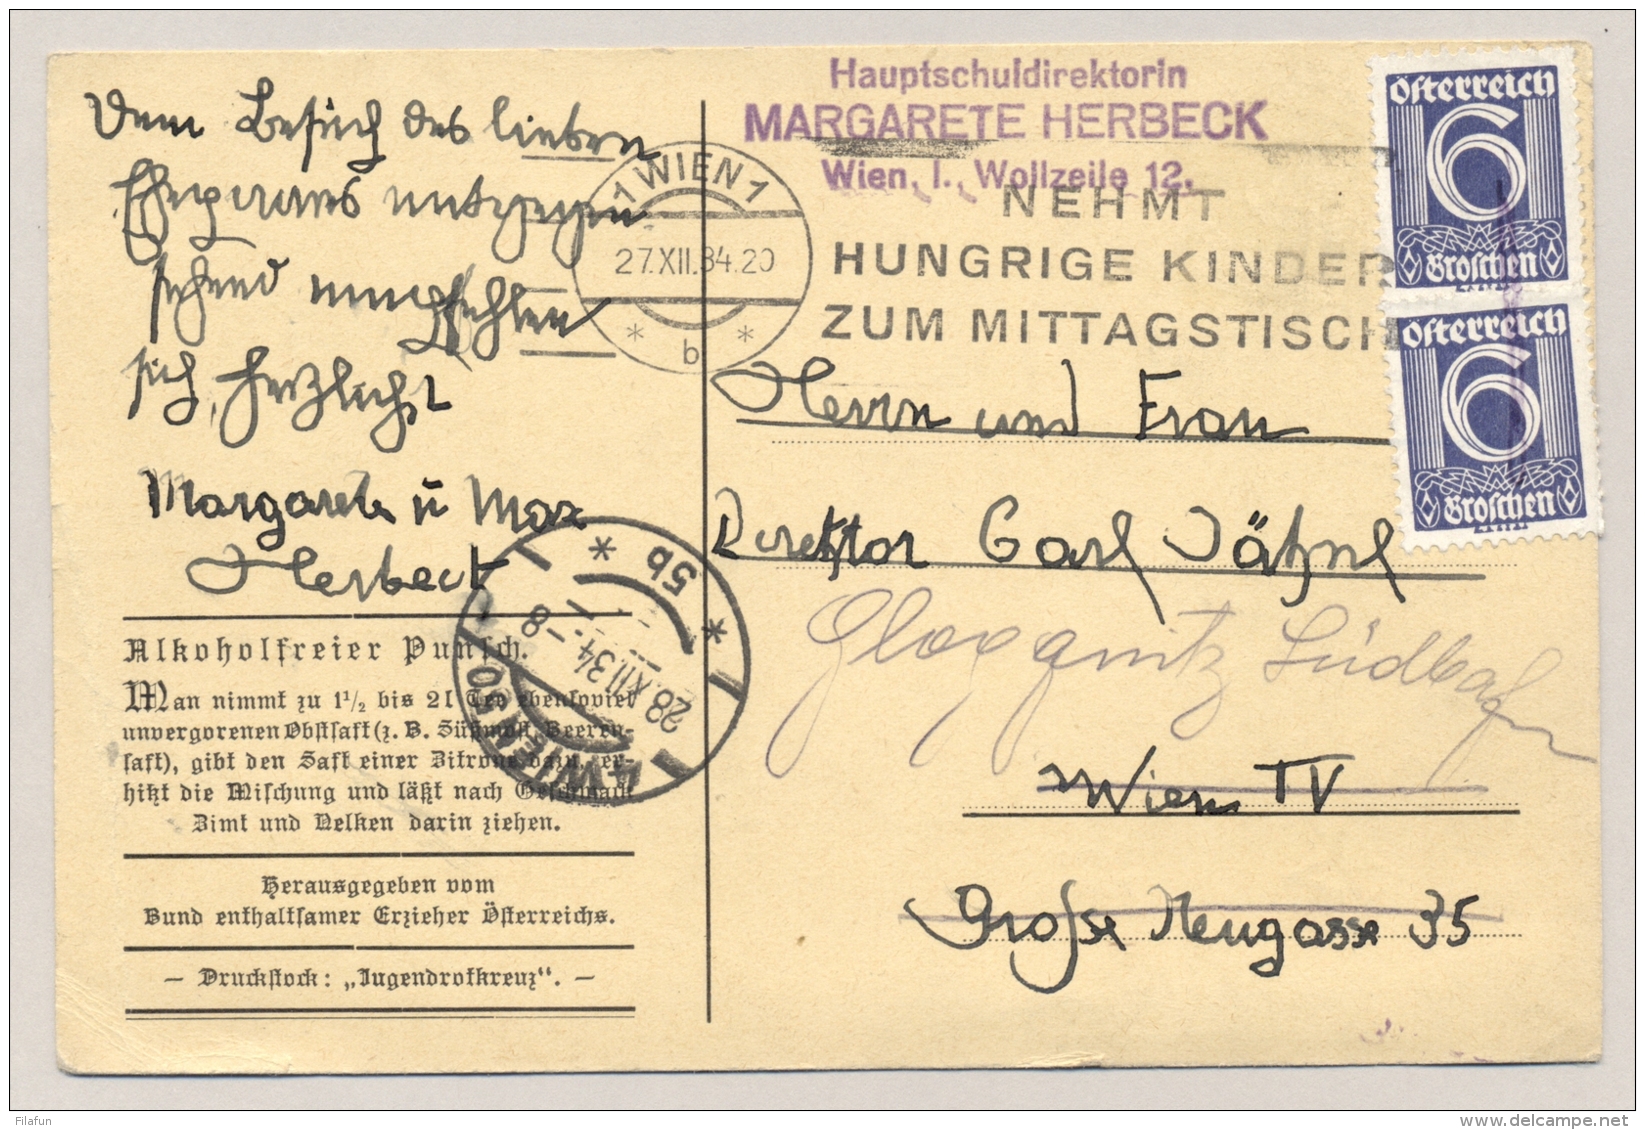 Dem Besuch des lieben
Ehepaares entgegen
sehend empfehlen
sich, herzlichst
Margarete u Max
Herbeck
Alkoholfreier Punsch.
Man nimmt zu 1½ bis 2 l Tee ebensoviel
unvergorenen Obstsaft (z. B. Süßmost, Beeren-
saft), gibt den Saft einer Zitrone dazu, er-
hitzt die Mischung und läßt nach Geschmack
Zimt und Nelken darin ziehen.
Herausgegeben vom
Bund enthaltsamer Erzieher Österreichs.
— Druckstock: „Jugendrotkreuz“. —
Hauptschuldirektorin
MARGARETE HERBECK
Wien, I., Wollzeile 12.
1 WIEN 1
27.XII.34.20
* b *
NEHMT
HUNGRIGE KINDER
ZUM MITTAGSTISCH
Österreich
6
Groschen
Österreich
6
Groschen
Herrn und Frau
Direktor Carl Jähnl
Gloggnitz Südbahn
Wien IV
Große Neugasse 35
4 WIEN 50
28.XII.34.-8
* 5b *
Filafun
delcampe.net